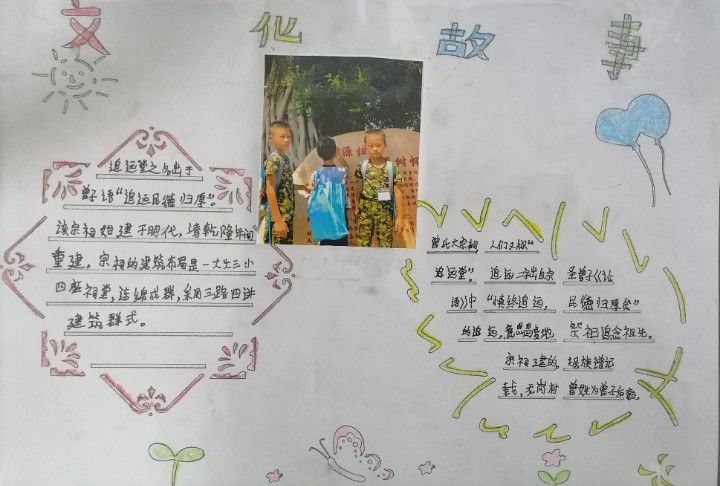 文化故事
追远堂之名出于
曾语“追远民德归厚”
该宗祠始建于明代，清乾隆年间
重建，宗祠的建筑布局是一大三小
四座祠堂，连绵成群，采用三路四进
建筑群式。
源归
树
曾氏大宗祠 人们又称“
追远堂”。追远二字出自宗圣曾子《论
语》中“慎终追远，民德归厚矣”
的追远，意思是 祭祀追念祖先。
宗祠 建的，据族谱记
载，
曾姓为曾子后裔。